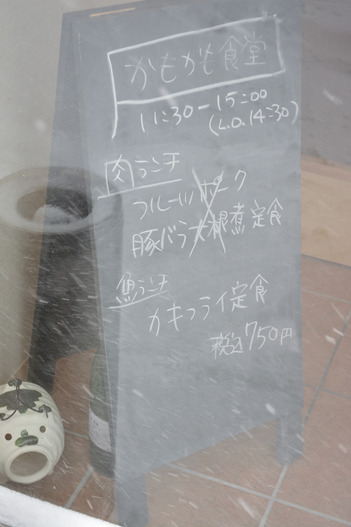 かもがも食堂
11:30-15:00
(L.O.14:30)
肉ランチ
フルーツポーク
豚バラ大根煮定食
魚ランチ
カキフライ定食
税込750円